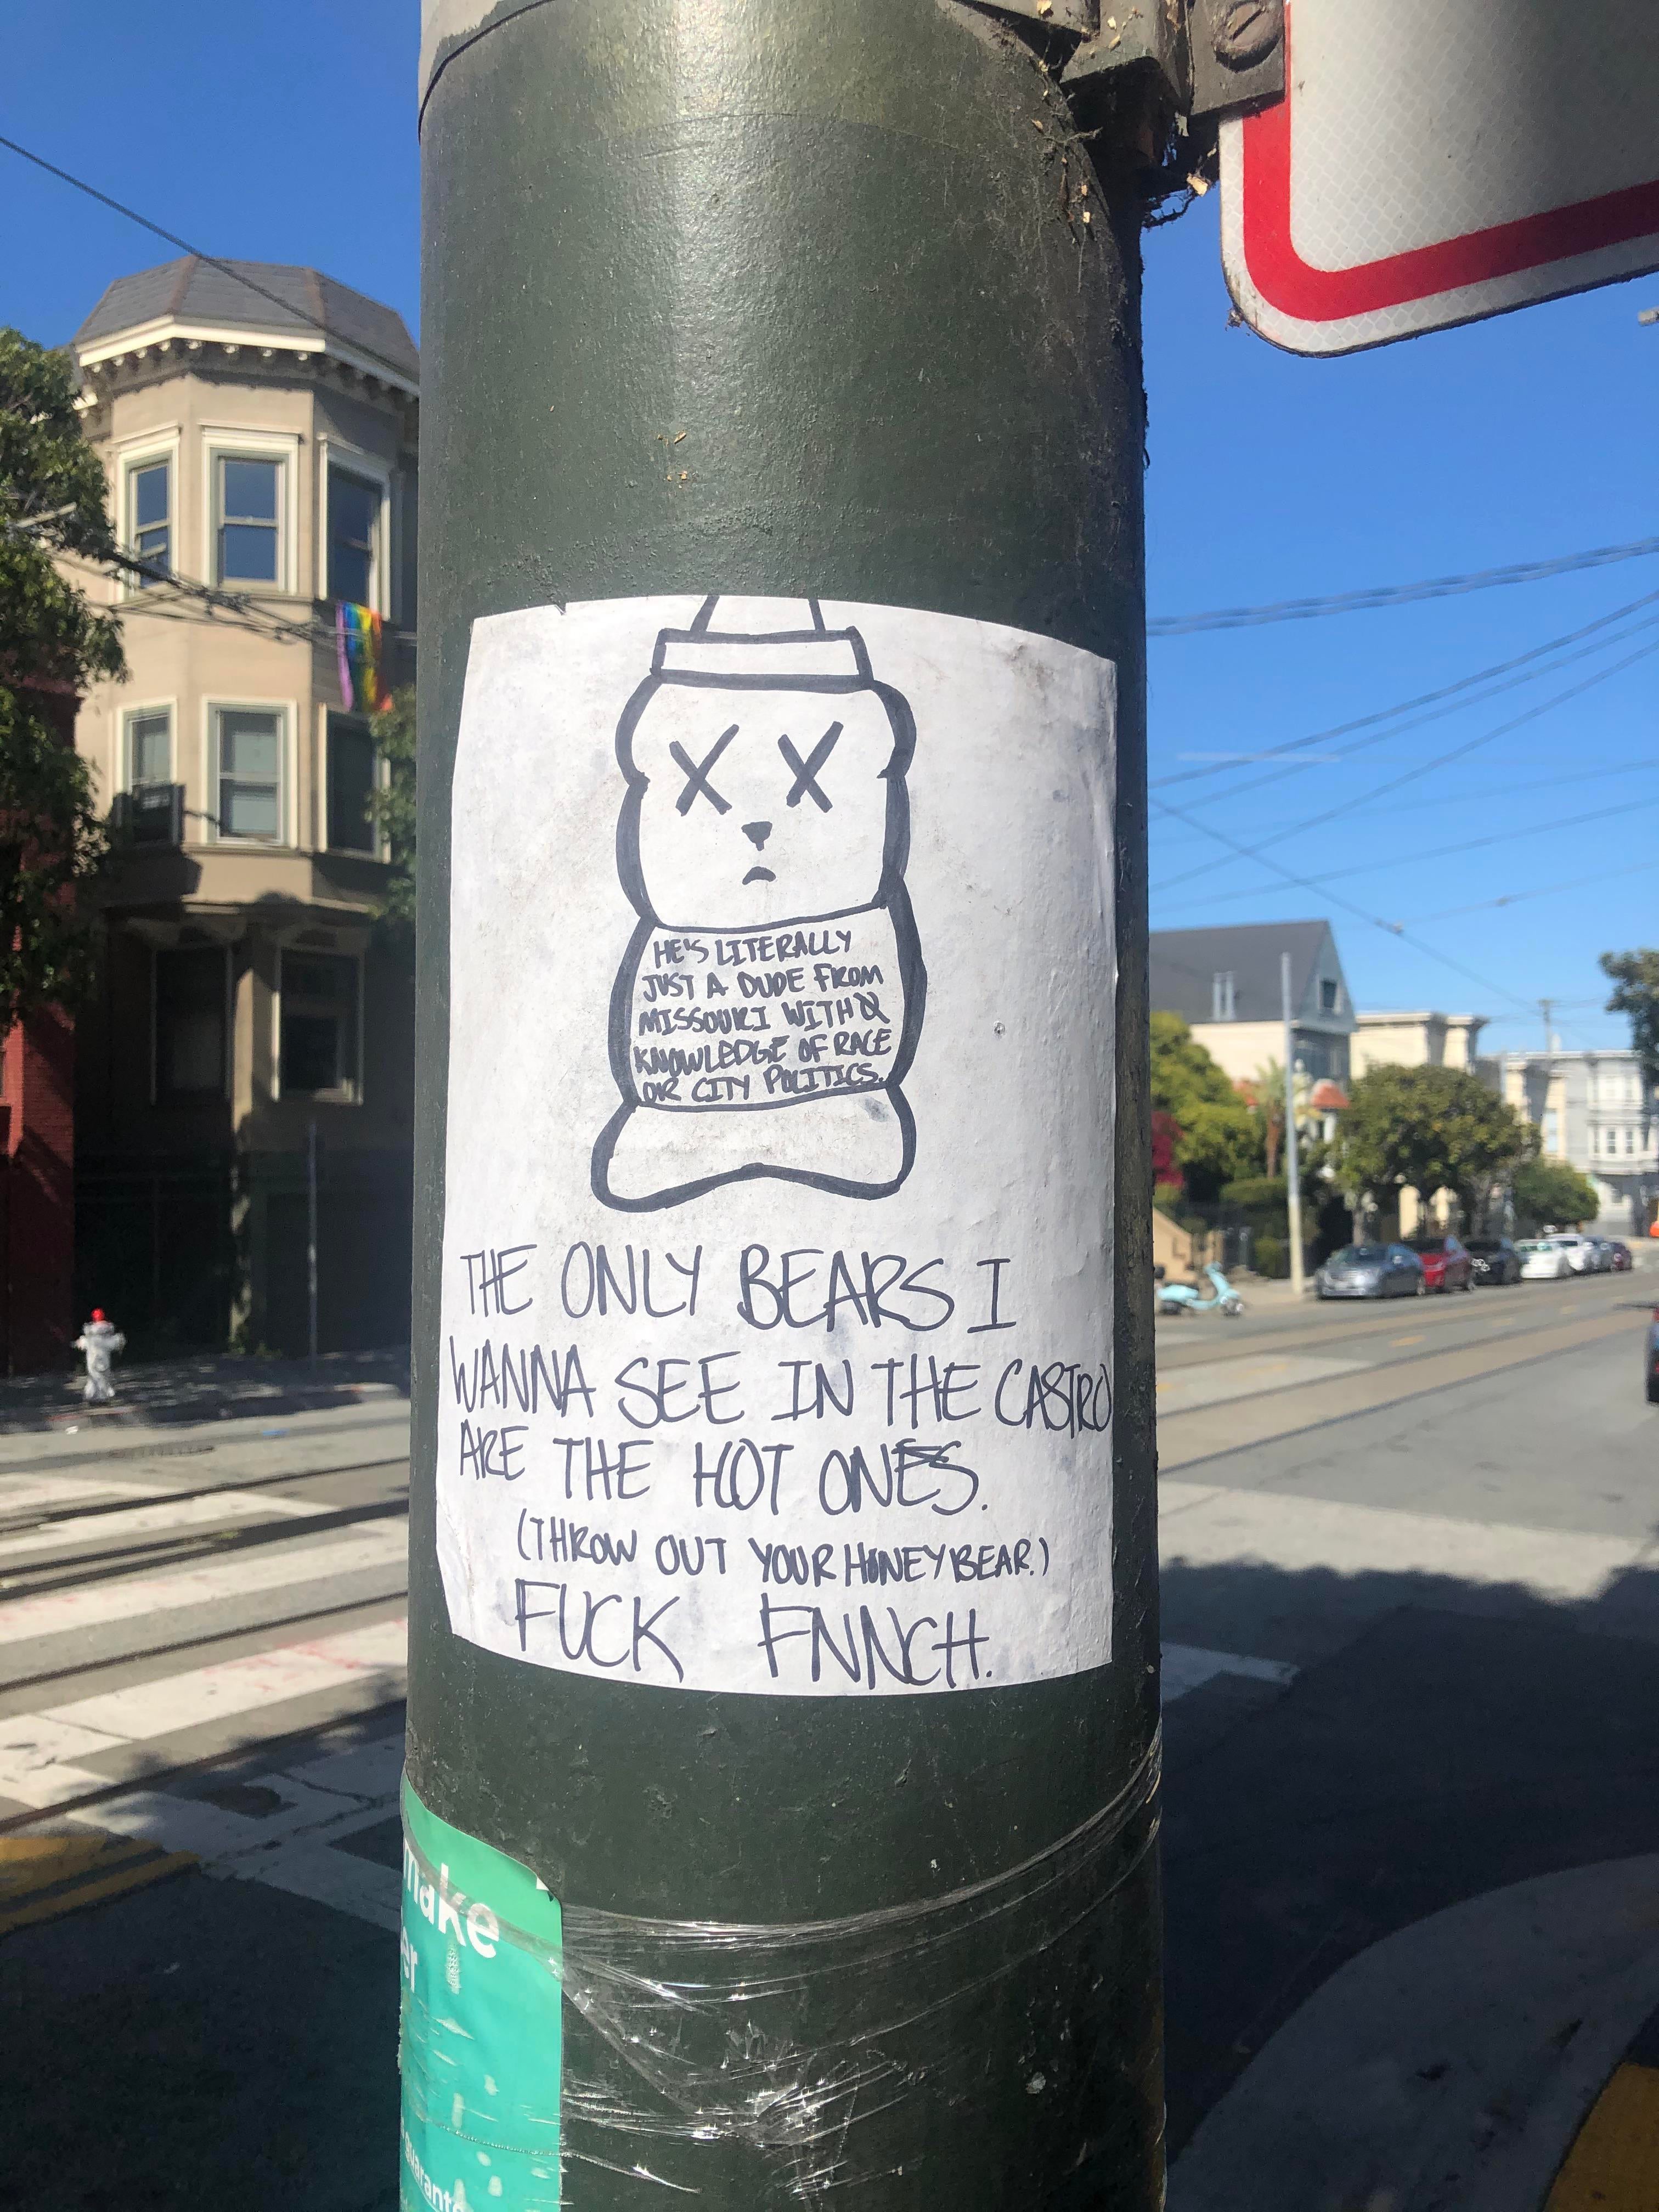 HE'S LITERALLY
JUST A DUDE FROM
MISSOURI WITH Ø
KNOWLEDGE OF RACE
OR CITY POLITICS.
THE ONLY BEARS I
WANNA SEE IN THE CASTRO
ARE THE HOT ONES.
(THROW OUT YOUR HONEY BEAR.)
FUCK FNNCH.
make
er
guarant